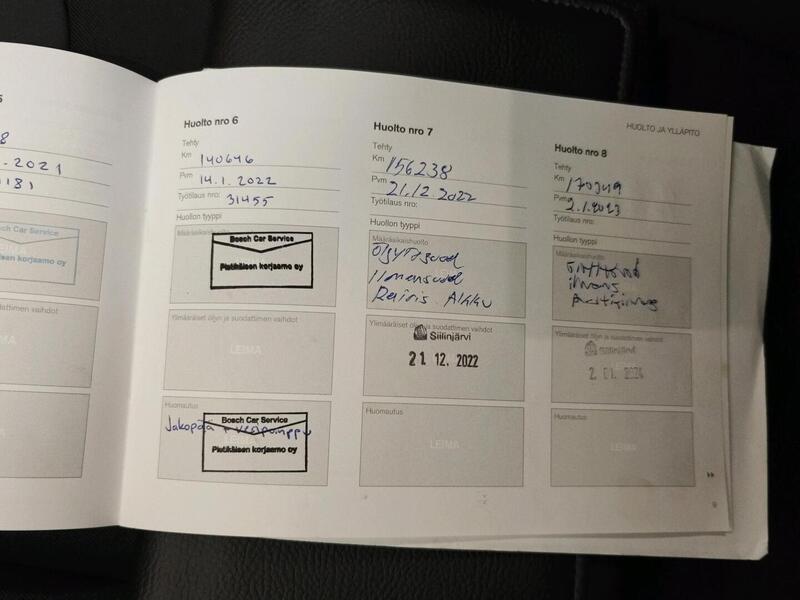 5
8
.2021
181
LEIMA
odattimen vaihdot
Huolto nro 6
Tehty
Km 140646
Pvm 14.1.2022
Työtilaus nro: 31455
Huollon tyyppi
Määräaikaishuolto
Bosch Car Service
Pietikäisen korjaamo oy
Ylimääräiset öljyn ja suodattimen vaihdot
LEIMA
Huomautus
Bosch Car Service
Jakopää + vesipumppu
LEIMA
Pietikäisen korjaamo oy
Huolto nro 7
Tehty
Km 156238
Pvm 21.12.2022
Työtilaus nro:
Huollon tyyppi
Määräaikaishuolto
Ilmansuod
Raitis. Akku
Ylimääräiset öljyn ja suodattimen vaihdot
Siilinjärvi
21 12. 2022
Huomautus
LEIMA
HUOLTO JA YLLÄPITO
Huolto nro 8
Tehty
Km
Pvm 2.1.2023
Työtilaus nro:
Huollon tyyppi
Määräaikaishuolto
Ylimääräiset öljyn ja suodattimen vaihdot
Siilinjärvi
2 01. 2024
Huomautus
LEIMA
9